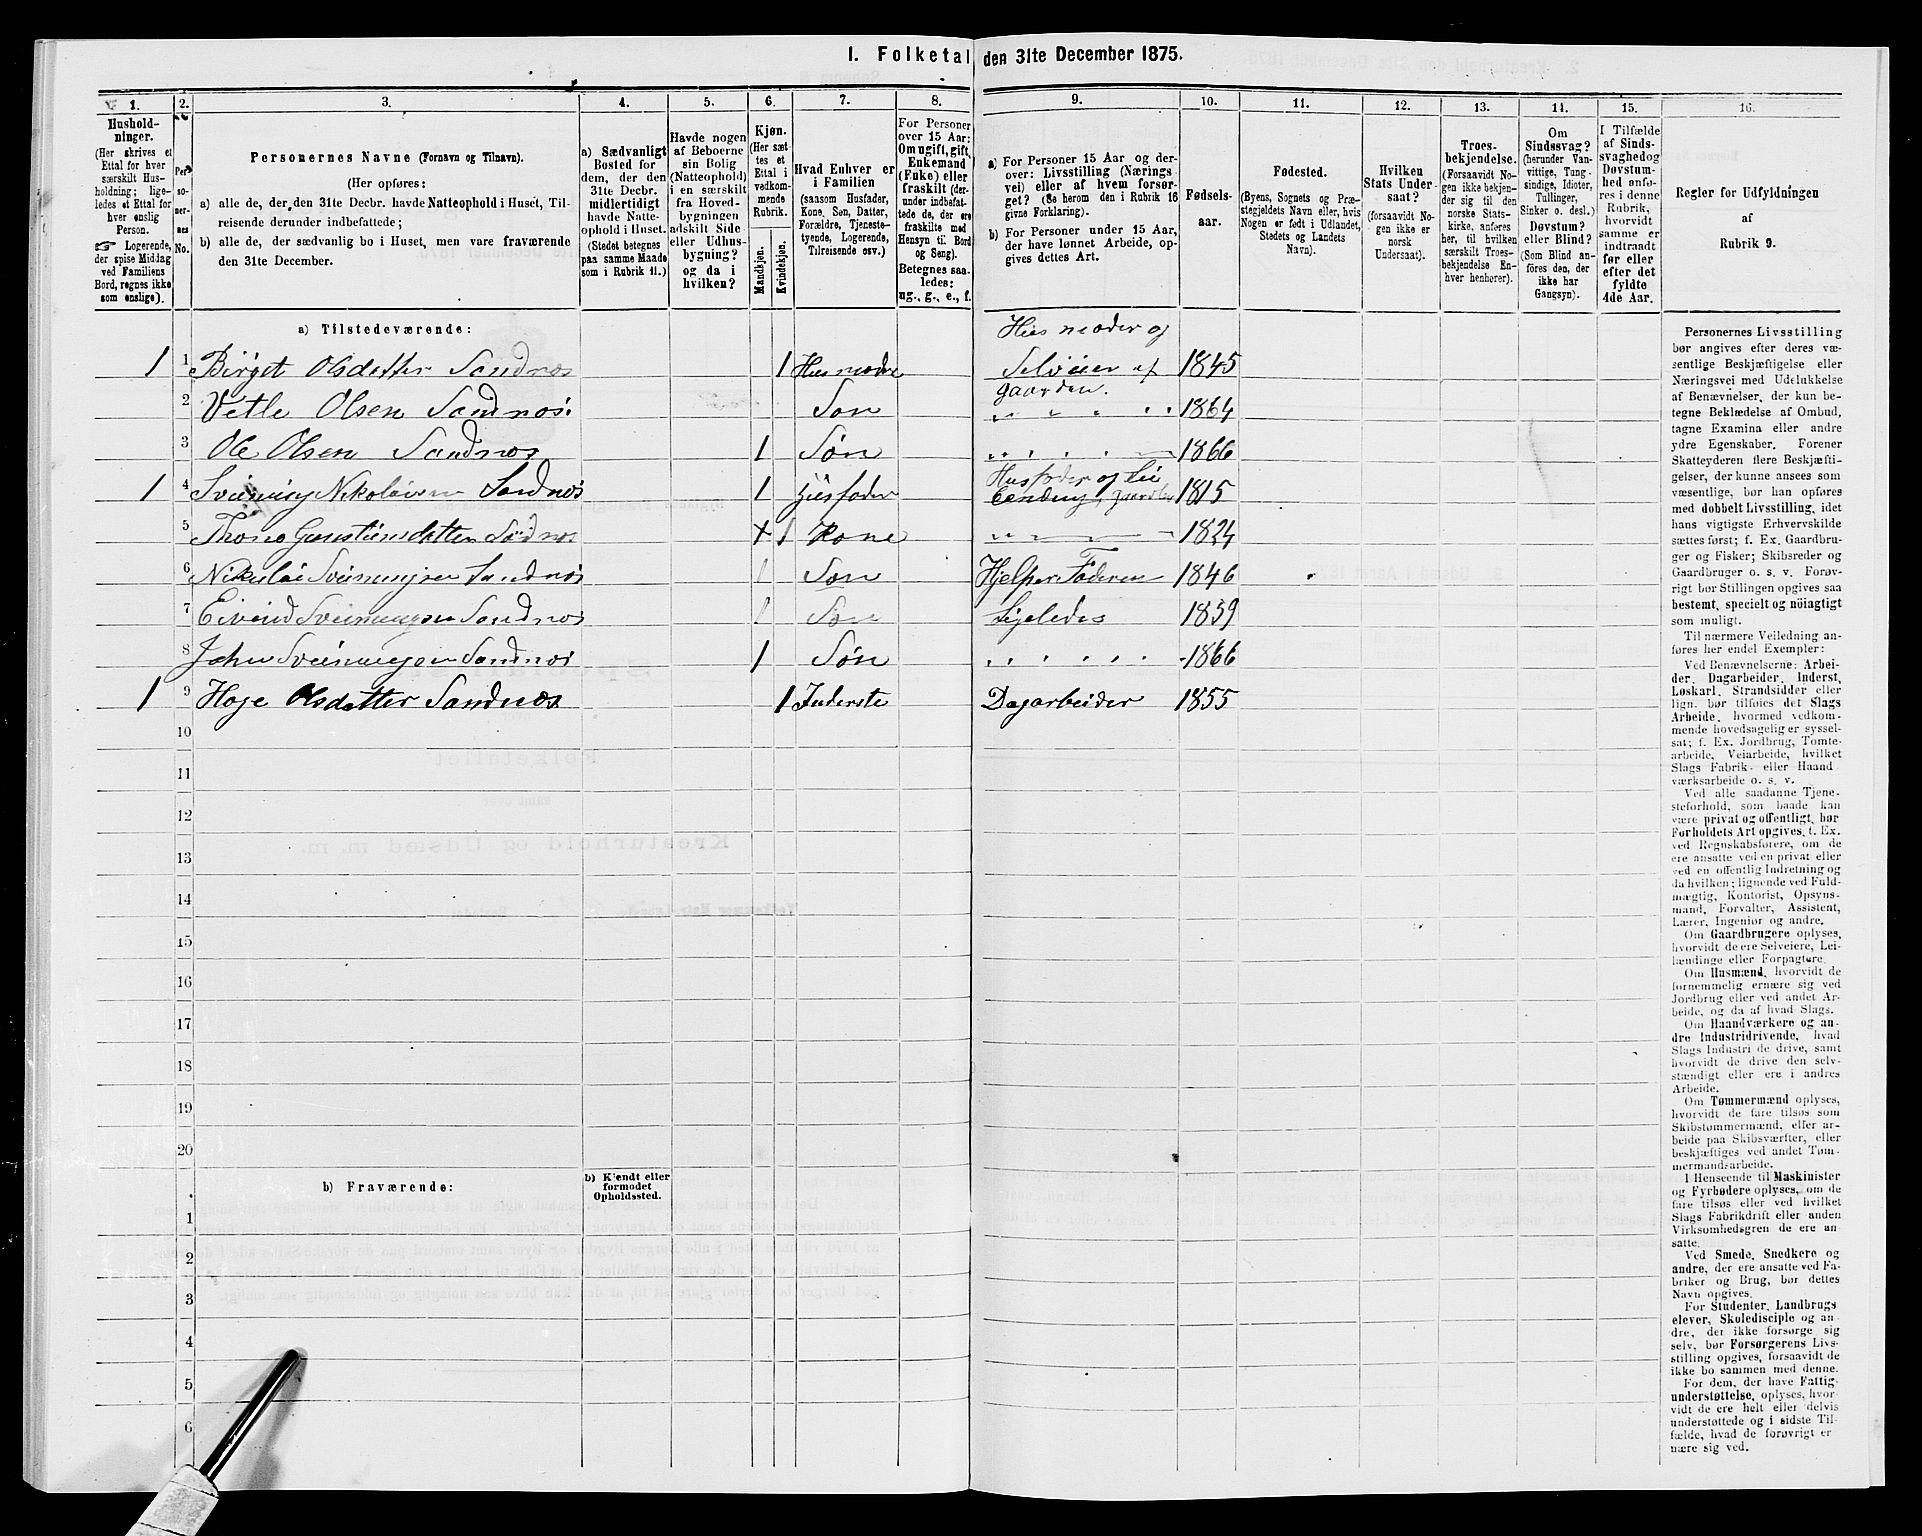 I. Folketal den 31te December 1875.
1. 2. 3. 4. 5. 6. 7. 8. 9. 10. 11. 12. 13. 14. 15. 16.
Hushold-
ninger.
(Her skrives et
Ettal for hver
særskilt Hus-
holdning; lige-
ledes et Ettal for
hver enslig
Person.
☞ Logerende,
der spise Middag
ved Familiens
Bord, regnes ikke
som enslige).
Per-
so-
ner-
nes
No.
Personernes Navne (Fornavn og Tilnavn).
(Her opføres:
a) alle de, der den 31te Decbr. havde Natteophold i Huset, Til-
reisende derunder indbefattede;
b) alle de, der sædvanlig bo i Huset, men vare fraværende
den 31te December.
a) Sædvanligt
Bosted for
dem, der den
31te Decbr.
midlertidigt
havde Natte-
ophold i Huset.
(Stedet betegnes
paa samme Maade
som i Rubrik 11.)
Havde nogen
af Beboerne
sin Bolig
(Natteophold)
i en særskilt
fra Hoved-
bygningen
adskilt Side-
eller Udhus-
bygning?
og da i
hvilken?
Kjøn.
(Her sæt-
tes et
Ettal i
vedkom-
mende
Rubrik.
Mandkjøn.
Kvindekjøn.
Hvad Enhver er
i Familien
(saasom Husfader,
Kone, Søn, Datter,
Forældre, Tjeneste-
tyende, Logerende,
Tilreisende osv.)
For Personer
over 15 Aar:
Om ugift, gift,
Enkemand
(Enke) eller
fraskilt (der-
under indbefat-
tede de, der ere
fraskilte med
Hensyn til Bord
og Seng).
Betegnes saa-
ledes:
ug., g., e., f.
a) For Personer 15 Aar og der-
over: Livsstilling (Nærings-
vei) eller af hvem forsør-
get? (Se herom den i Rubrik 16
givne Forklaring).
b) For Personer under 15 Aar,
der have lønnet Arbeide, op-
gives dettes Art.
Fødsels-
aar.
Fødested.
(Byens, Sognets og Præ-
stegjeldets Navn eller, hvis
Nogen er født i Udlandet,
Stedets og Landets
Navn).
Hvilken
Stats Under-
saat?
(forsaavidt No-
gen ikke er
norsk
Undersaat).
Troes-
bekjendelse.
(Forsaavidt No-
gen ikke bekjen-
der sig til den
norske Stats-
kirke, anføres
her, til hvilken
særskilt Troes-
bekjendelse En-
hver henhører).
Om
Sindssvag?
(herunder Van-
vittige, Tung-
sindige, Idioter,
Tullinger,
Sinker o. desl.)
Døvstum?
eller Blind?
(Som Blind an-
føres den, der
ikke har
Gangsyn).
I Tilfælde
af Sinds-
svaghed og
Døvstum-
hed anfø-
res i denne
Rubrik,
hvorvidt
samme er
indtraadt
før eller
efter det
fyldte
4de Aar.
Regler for Udfyldningen
af
Rubrik 9.
a) Tilstedeværende:
1 1 Birget Olsdatter Sandnæs 1 Husmoder Husmoder og Selveier af gaarden. 1845
2 Vetle Olsen Sandnæs. Søn 1864
3 Ole Olsen Sandnæs 1 Søn 1866
1 4 Sveinung Nikolaisen Sandnæs 1 Husfader Husfader og 1815
5 Sandnæs 1 Kone 1824
6 Nikolai Sveinungsen Sandnæs 1 Søn Hjelper Faderen 1846
7 Eivind Sveinungsen Sandnæs 1 Søn Ligeledes 1859
8 John Sveinungsen Sandnæs 1 Søn 1866
1 9 Hoge Olsdatter Sandnæs 1 Inderste Dagarbeider 1855
10
11
12
13
14
15
16
17
18
19
20
b) Fraværende:
b) Kjendt eller
formodet
Opholdssted.
1
2
3
4
5
6
Personernes Livsstilling
bør angives efter deres væ-
sentlige Beskjæftigelse eller
Næringsvei med Udelukkelse
af Benævnelser, der kun be-
tegne Beklædelse af Ombud,
tagne Examina eller andre
ydre Egenskaber. Forener
Skatteyderen flere Beskjæfti-
gelser, der kunne ansees som
væsentlige, bør han opføres
med dobbelt Livsstilling, idet
hans vigtigste Erhvervskilde
sættes først; f. Ex. Gaardbru-
ger og Fisker; Skibsreder og
Gaardbruger o. s. v. Forøv-
rigt bør Stillingen opgives saa
bestemt, specielt og nöiagtigt
som muligt.
Til nærmere Veiledning an-
føres her endel Exempler:
Ved Benævnelserne: Arbei-
der, Dagarbeider, Inderst,
Løskarl, Strandsidder eller
lign. bør tilføies det Slags
Arbeide, hvormed vedkom-
mende hovedsagelig er syssel-
sat; f. Ex. Jordbrug, Tomte-
arbeide, Veiarbeide, hvilket
Slags Fabrik- eller Haand
værksarbeide o. s. v.
Ved alle saadanne Tjene-
steforhold, som baade kan
være privat og offentligt, bør
Forholdets Art opgives, t. Ex.
ved Regnskabsførere, om de
ere ansatte ved en privat eller
ved en offentlig Indretning og
da hvilken; lignende ved Fuld-
mægtig, Kontorist, Opsyns-
mand, Forvalter, Assistent,
Lærer, Ingeniør og andre.
Om Gaardbrugere oplyses,
hvorvidt de ere Selveiere, Lei-
lændinge eller Forpagtere.
Om Husmænd, hvorvidt de
fornemmelig ernære sig ved
Jordbrug eller ved andet Ar-
beide, og da af hvad Slags.
Om Haandværkere og an-
dre Industridrivende, hvad
Slags Industri de drive, samt
hvorvidt de drive den selv-
stændigt eller ere i andres
Arbeide.
Om Tømmermænd oplyses,
hvorvidt de fare tilsøs som
Skibstømmermænd, eller ar-
beide paa Skibsværfter, eller
beskjæftiges ved andet Tøm-
mermandsarbeide.
I Henseende til Maskinister
og Fyrbødere oplyses, om de
fare tilsøs eller ved hvilket
Slags Fabrikdrift eller anden
Virksomhedsgren de ere an-
satte.
Ved Smede, Snedkere og
andre, der ere ansatte ved Fa-
briker og Brug, bør dettes
Navn opgives.
For Studenter, Landbrugs
elever, Skoledisciple og an-
dre, der ikke forsørge sig
selv, bør Forsørgerens Livs-
stilling opgives, forsaavidt de
ikke bo sammen med denne.
For dem, der have Fattig-
understøttelse, oplyses, hvor-
vidt de ere helt eller delvis
understøttede og i sidste Til-
fælde, hvad de forøvrigt er
nære sig ved.